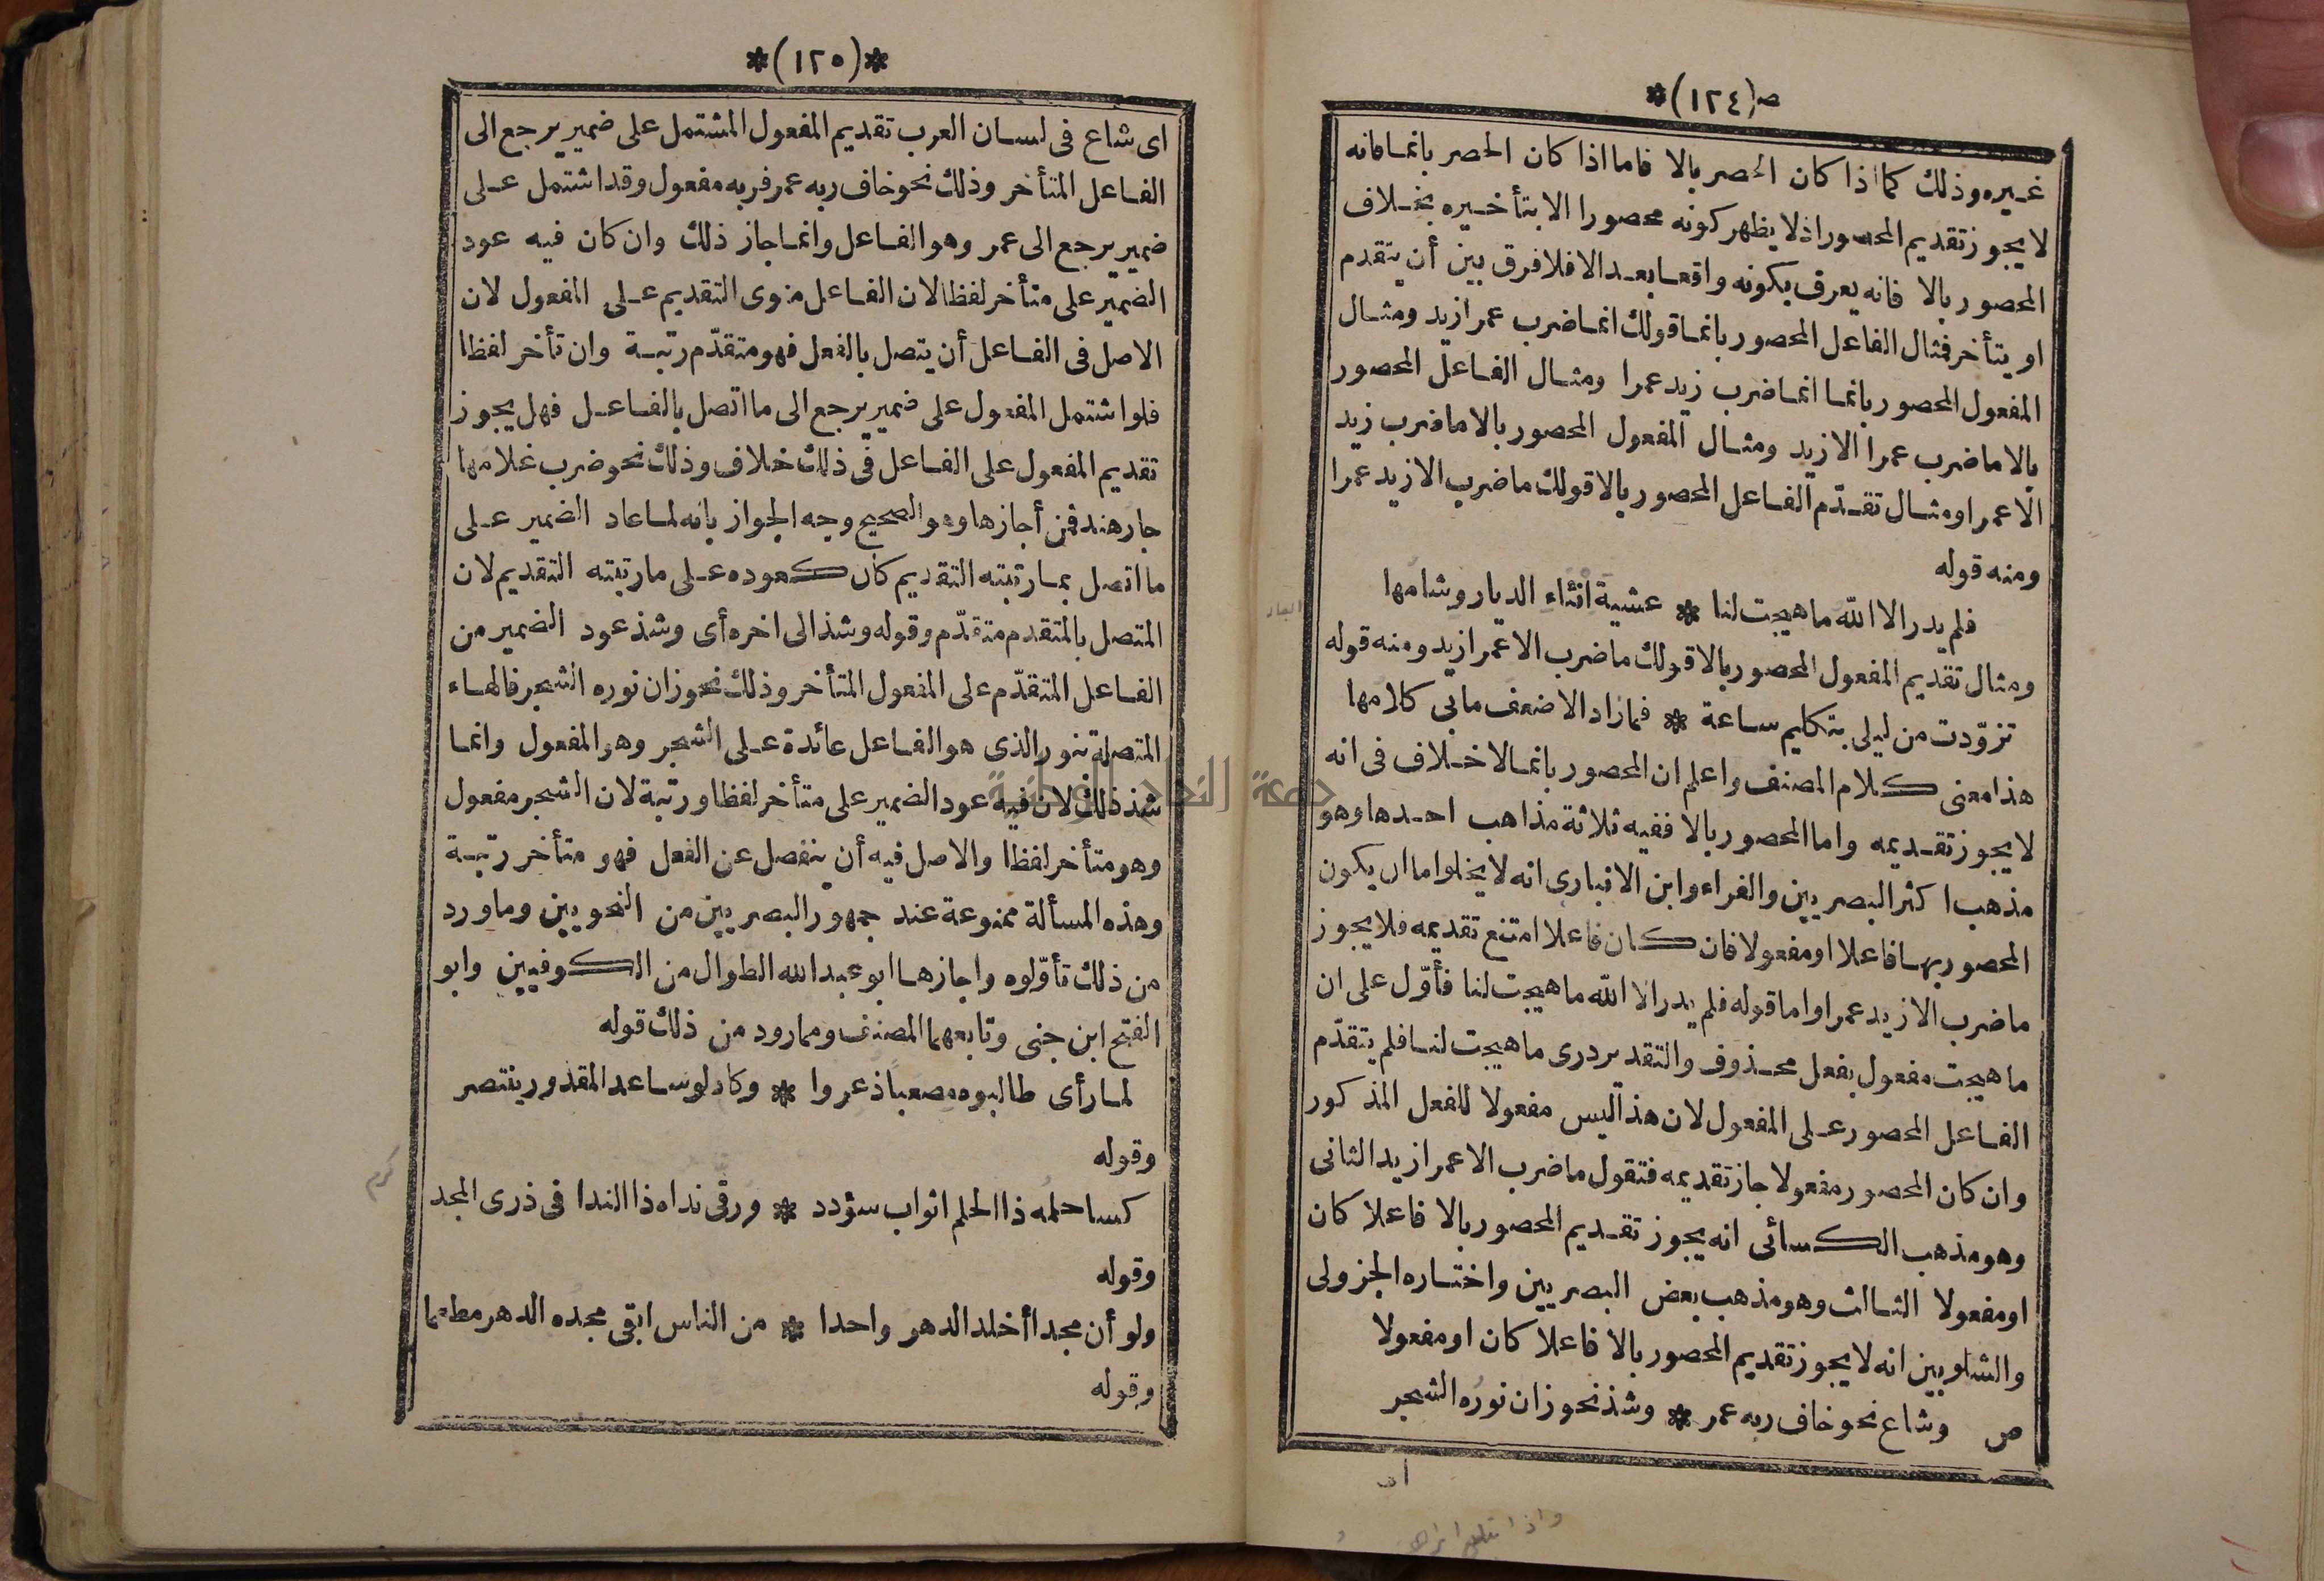 *(١٢٤)*
غيره وذلك كما اذا كان الحصر بالا فاما اذا كان الحصر بانما فانه
لا يجوز تقديم المحصور اذ لا يظهر كونه محصورا الا بتأخيره بخلاف
المحصور بالا فانه يعرف بكونه واقعا بعد الا فلا فرق بين أن يتقدم
او يتأخر فمثال الفاعل المحصور بانما قولك انما ضرب عمرا زيد ومثال
المفعول المحصور بانما انما ضرب زيد عمرا ومثال الفاعل المحصور
بالا ما ضرب عمرا الا زيد ومثال المفعول المحصور بالا ما ضرب زيد
الا عمرا ومثال تقدّم الفاعل المحصور بالا قولك ما ضرب الا زيد عمرا
ومنه قوله
فلم يدر الا الله ما هيجت لنا * عشية انئاء الديار وشامها
ومثال تقديم المفعول المحصور بالا قولك ما ضرب الا عمرا زيد ومنه قوله
تزوّدت من ليلى بتكليم ساعة * فما زاد الا ضعف ما بى كلامها
هذا معنى كلام المصنف واعلم ان المحصور بانما لا خلاف فى انه
لا يجوز تقديمه واما المحصور بالا ففيه ثلاثة مذاهب احدها وهو
مذهب اكثر البصريين والفراء وابن الانبارى انه لا يخلو اما ان يكون
المحصور بها فاعلا او مفعولا فان كان فاعلا امتنع تقديمه فلا يجوز
ما ضرب الا زيد عمرا واما قوله فلم يدر الا الله ما هيجت لنا فأوّل على ان
ما هيجت مفعول بفعل محذوف والتقدير درى ما هيجت لنا فلم يتقدّم
الفاعل المحصور على المفعول لان هذا ليس مفعولا للفعل المذكور
وان كان المحصور مفعولا جاز تقديمه فتقول ما ضرب الا عمرا زيد الثانى
وهو مذهب الكسائى انه يجوز تقديم المحصور بالا فاعلا كان
او مفعولا الثالث وهو مذهب بعض البصريين واختاره الجزولى
والشلوبين انه لا يجوز تقديم المحصور بالا فاعلا كان او مفعولا
ص وشاع نحو خاف ربه عمر * وشذ نحو زان نوره الشجر
اى
واذا
*(١٢٥)*
اى شاع فى لسان العرب تقديم المفعول المشتمل على ضمير يرجع الى
الفاعل المتأخر وذلك نحو خاف ربه عمر فربه مفعول وقد اشتمل على
ضمير يرجع الى عمر وهو الفاعل وانما جاز ذلك وان كان فيه عود
الضمير على متأخر لفظا لان الفاعل منوى التقديم على المفعول لان
الاصل فى الفاعل أن يتصل بالفعل فهو متقدّم رتبة وان تأخر لفظا
فلو اشتمل المفعول على ضمير يرجع الى ما اتصل بالفاعل فهل يجوز
تقديم المفعول على الفاعل فى ذلك خلاف وذلك نحو ضرب غلامها
جار هند فمن أجازها وهو الصحيح وجه الجواز بانه لما عاد الضمير على
ما اتصل بما رتبته التقديم كان كعوده على ما رتبته التقديم لان
المتصل بالمتقدم متقدّم وقوله وشذ الى اخره أى وشذ عود الضمير من
الفاعل المتقدّم على المفعول المتأخر وذلك نحو زان نوره الشجر فالهاء
المتصلة بنور الذى هو الفاعل عائدة على الشجر وهو المفعول وانما
شذ ذلك لان فيه عود الضمير على متأخر لفظا ورتبة لان الشجر مفعول
وهو متأخر لفظا والاصل فيه أن ينفصل عن الفعل فهو متأخر رتبة
وهذه المسألة ممنوعة عند جمهور البصريين من النحويين وما ورد
من ذلك تأوّلوه واجازها ابو عبد الله الطوال من الكوفيين وابو
الفتح ابن جنى وتابعهما المصنف ومما رود من ذلك قوله
لما رأى طالبوه مصعبا ذعروا * وكاد لو ساعد المقدور ينتصر
وقوله
كسا حلمه ذا الحلم اثواب سؤدد * ورقّى نداه ذا الندا فى ذرى المجد
وقوله
ولو أن مجدا أخلد الدهر واحدا * من الناس ابقى مجده الدهر مطعما
وقوله